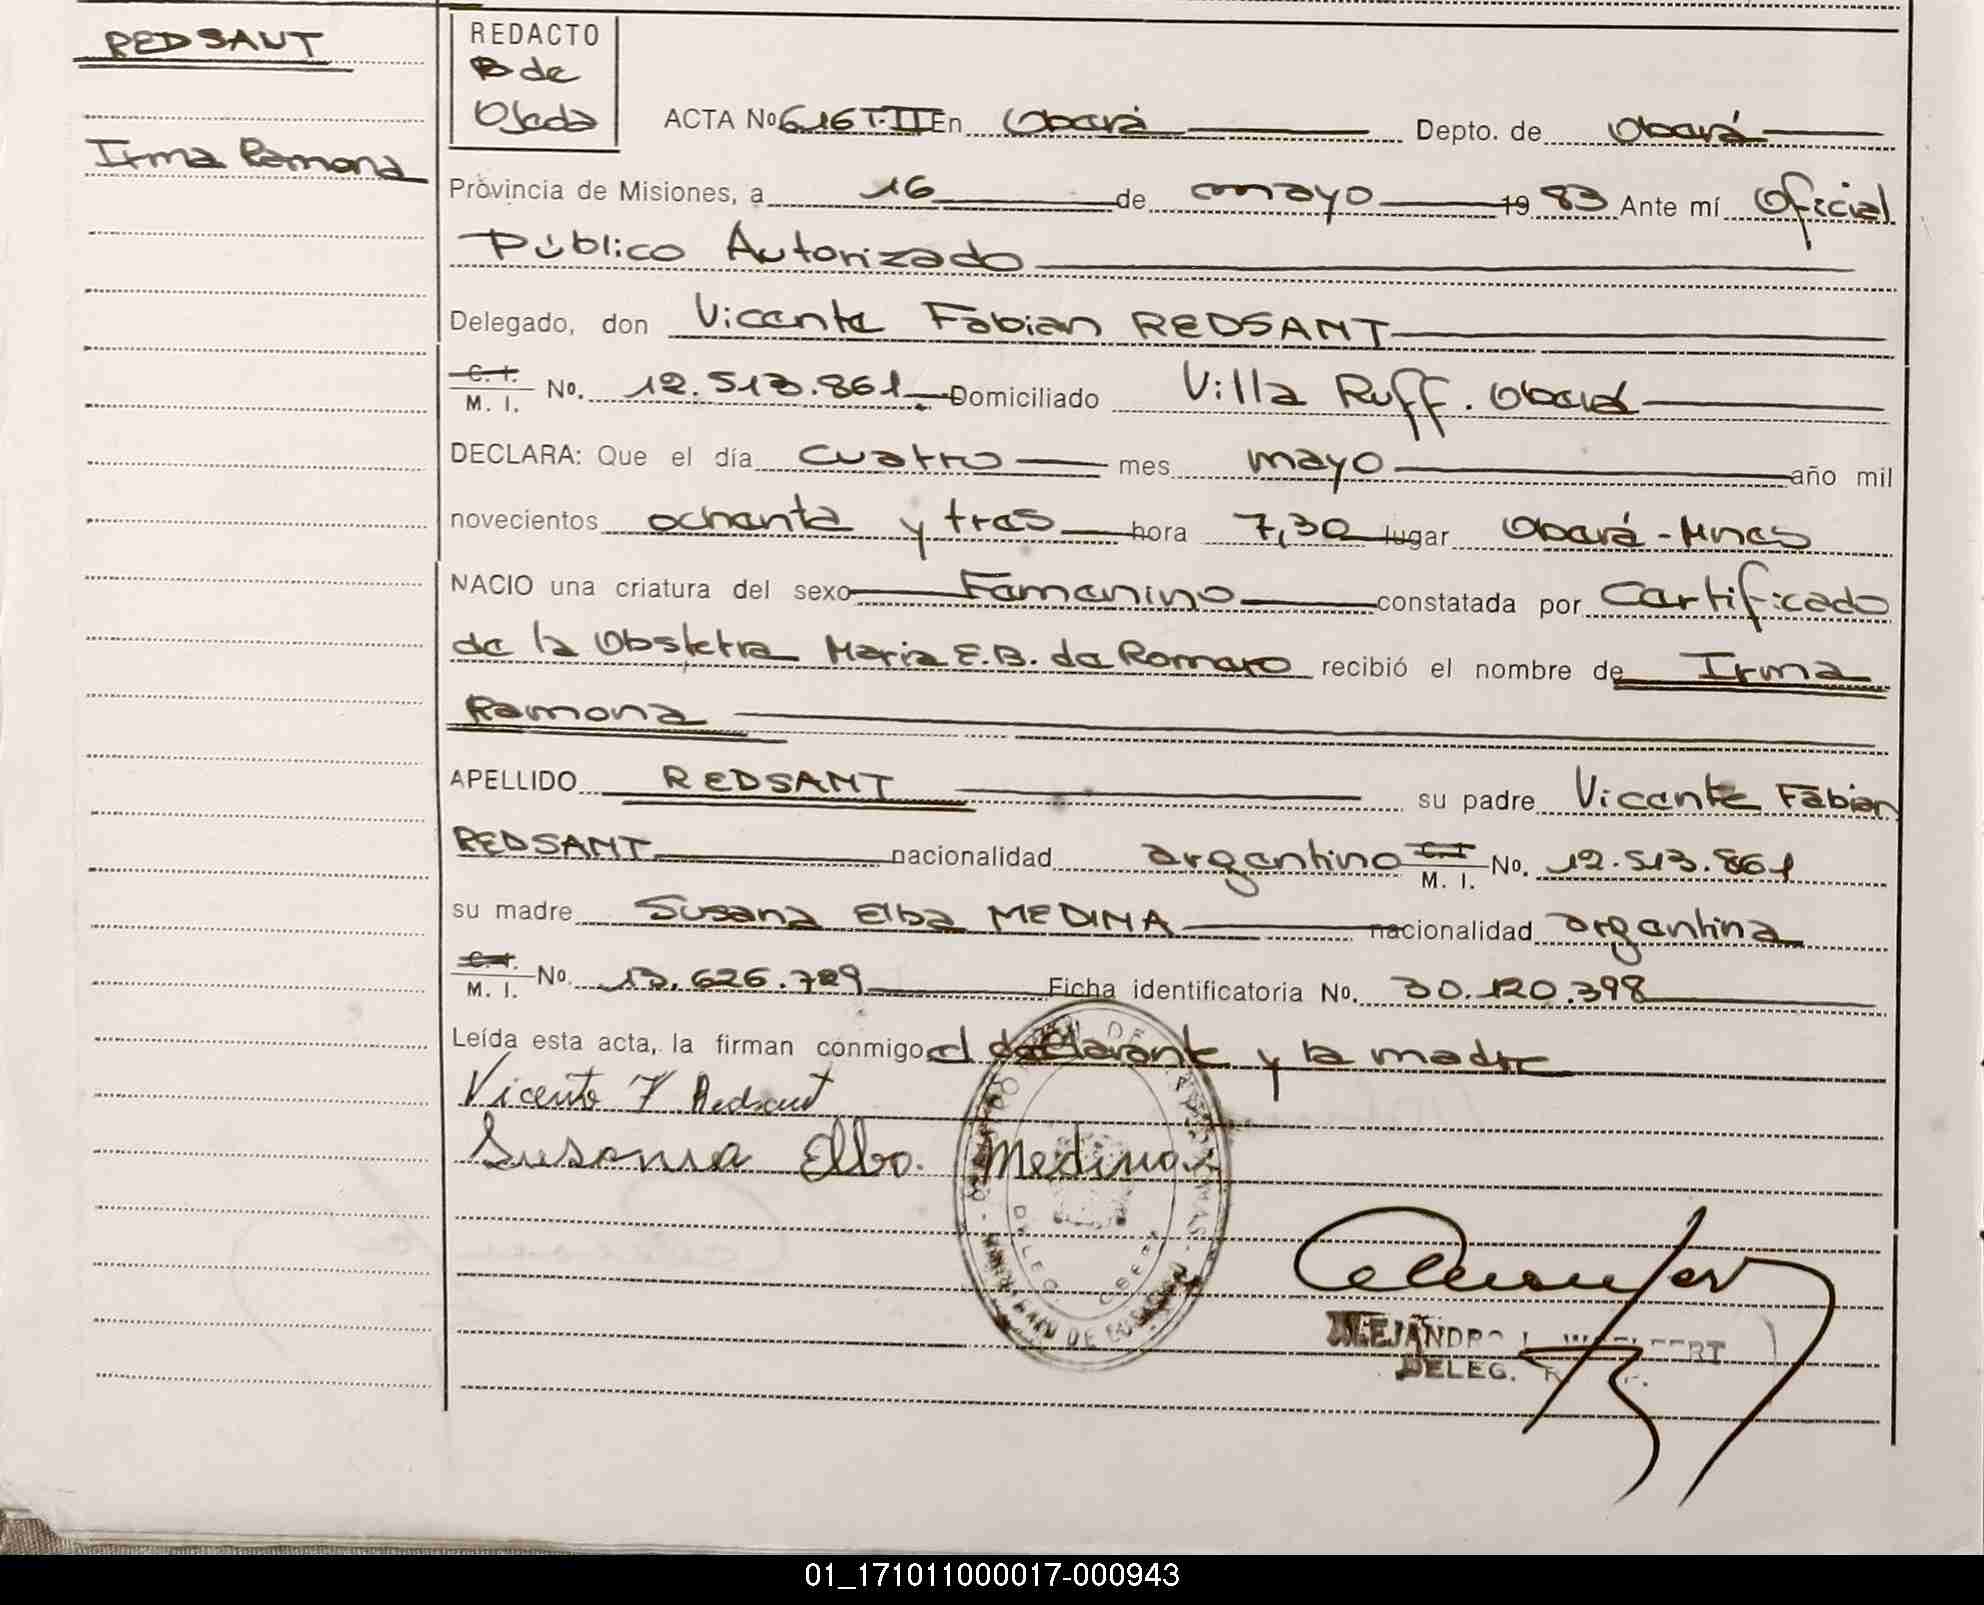 REDSANT
Irma Ramona
REDACTO
B de
Ojeda
ACTA Nº 616 T-II En Oberá Depto. de Oberá
Provincia de Misiones, a 16 de mayo 1983 Ante mí Oficial
Público Autorizado
Delegado, don Vicente Fabian REDSANT
C. I.
M. I. No. 12.513.861 Domiciliado Villa Ruff. Oberá
DECLARA: Que el día cuatro mes mayo año mil
novecientos ochenta y tres hora 7,30 lugar Oberá - Mnes
NACIO una criatura del sexo Femenino constatada por Certificado
de la Obstetra Maria E.B. de Romero recibió el nombre de Irma
Ramona
APELLIDO REDSANT su padre Vicente Fabian
REDSANT nacionalidad argentino C.I
M. I. No. 12.513.861
su madre Susana Elba MEDINA nacionalidad argentina
C.I.
M. I. No. 13.626.789 Ficha identificatoria No. 30.120.398
Leída esta acta, la firman conmigo el declarante y la madre
Vicente F Redsant
Susana Elba Medina
DELEG. OBERA
ALEJANDRO
DELEG.
01_171011000017-000943